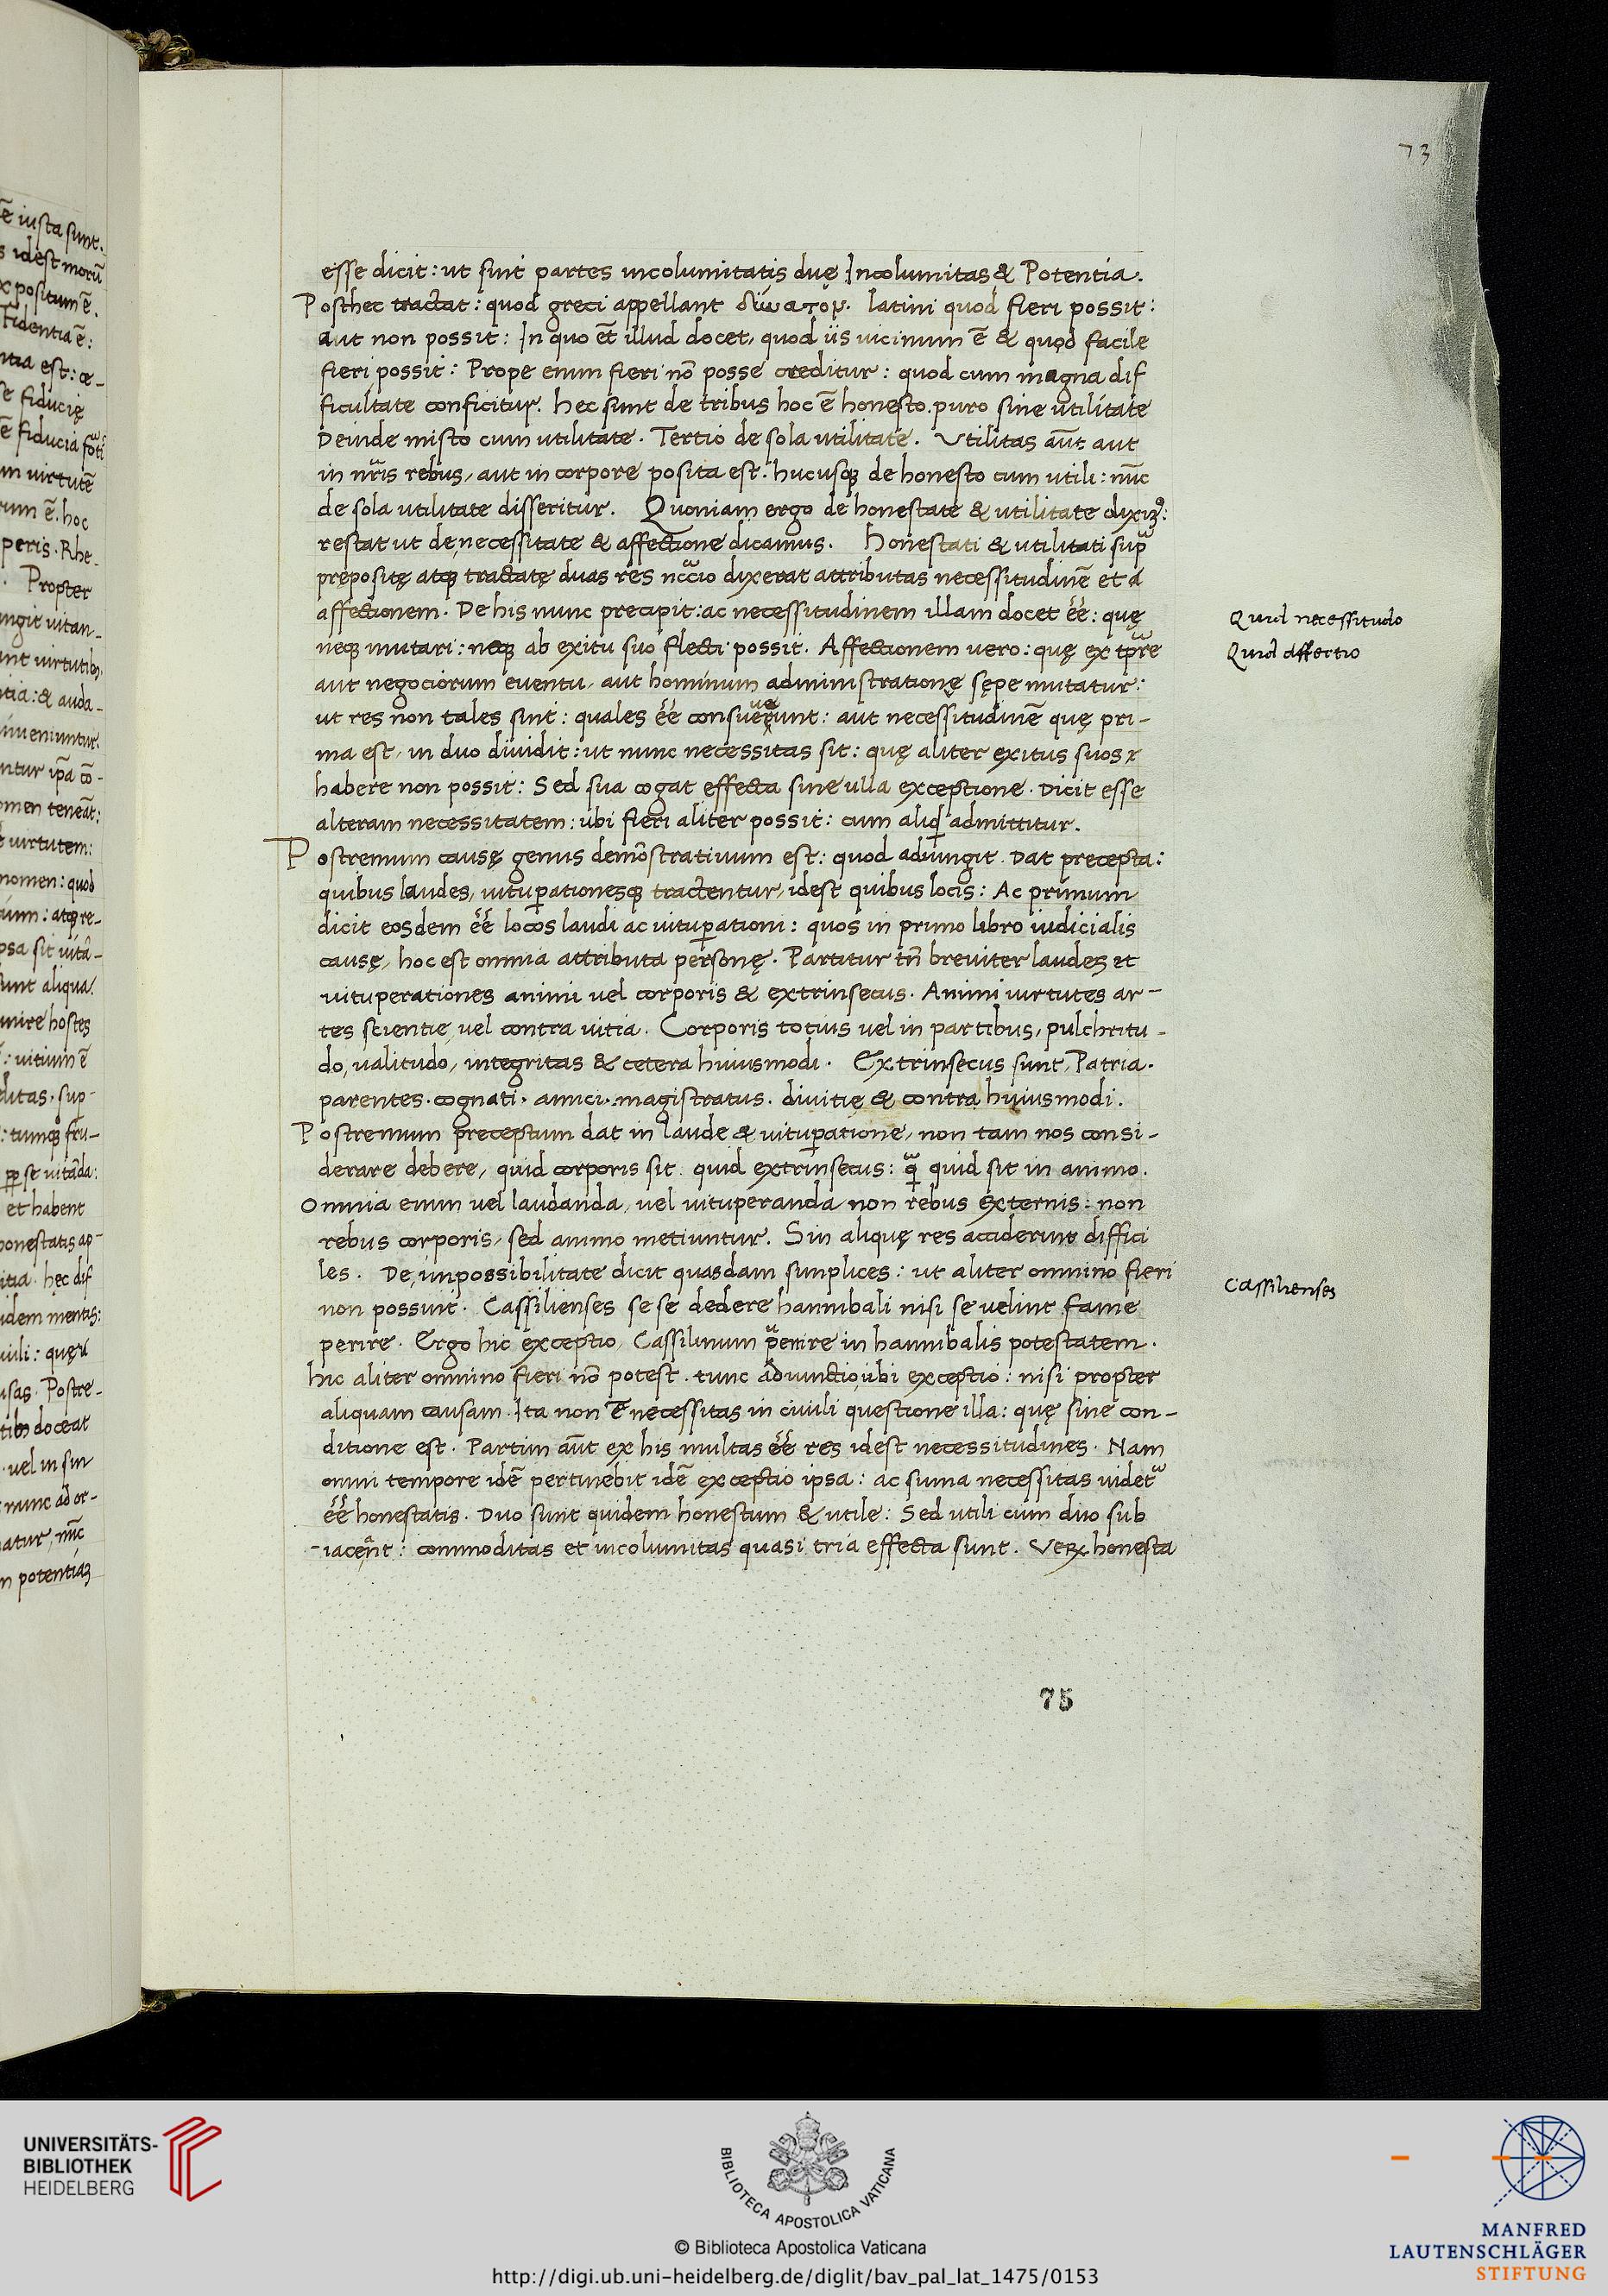 ē iusta sunt.
s idest morū
xpositum ē.
Fidentia ē:
ntia est: œ-
e fiducię
ē fiducia
m virtutē
rum ē. hoc
peris. Rhe-
. Propter
ungit vitan-
unt virtutib;
tia: & auda-
inveniuntur.
ntur ip̄a cō-
omen teneāt:
virtutem:
nomen: quod
atq; re-
psa sit vitā-
unt aliqua.
mire hostes
: vitium ē
ditas. sup-
: tumq; fru-
p̱ se vitāda:
et habent
honestatis ap-
itia. hęc dif
idem mentis:
usas. Postre-
doceat
. vel in sin
nunc ad or-
atur, nūc
n potentiaʒ
73
esse dicit: ut sint partes incolumitatis duę Incolumitas & Potentia.
Posthec tractat: quod greci appellant δϊνατον. latini quod fieri possit:
aut non possit: In quo ēt illud docet, quod iis vicinum ē & quod facile
fieri possit: Prope enim fieri nō posse creditur: quod cum magna dif
ficultate conficitur. hec sunt de tribus hoc ē honesto. puro sine utilitate
Deinde misto cum utilitate. Tertio de sola utilitate. Utilitas aūt aut
in nr̄is rebus, aut in corpore posita est. hucusq; de honesto cum utili: nūc
de sola utilitate disseritur. Quoniam ergo de honestate & utilitate dixiꝰ:
restat ut de necessitate & affectione dicamus. Honestati & utilitati sup̄
prepositę atq; tractatę duas res dixerat attributas necessitudinē et a
affectionem. De his nunc precipit: ac necessitudinem illam docet éé: quę
neq; mutari: neq; ab exitu suo flecti possit. Affectionem vero: quę ex tp̄re
aut negociorum eventu, aut hominum administratione sępe mutatur:
ut res non tales sint: quales éé consueverunt: aut necessitudinē quę pri-
ma est, in duo dividit: ut nunc necessitas sit: quę aliter exitus suos
habere non possit: Sed sua cogat effecta sine ulla exceptione. Dicit esse
alteram necessitatem: ubi fieri aliter possit: cum aliqđ admittitur.
Postremum causę genus demōstrativum est: quod adiungit. Dat precepta:
quibus laudes, vitup̱ationesq; tractentur, idest quibus locis: Ac primum
dicit eosdem éé locos laudi ac vitup̱ationi: quos in primo libro iudicialis
causę, hoc est omnia attributa personę. Partitur tn̄ breviter laudes et
vituperationes animi vel corporis & extrinsecus. Animi virtutes ar-
tes scientię, vel contra vitia. Corporis totius vel in partibus, pulchritu-
do, valitudo, integritas & cetera huiusmodi. Extrinsecus sunt, Patria.
parentes. cognati. amici. magistratus. divitię & contra huiusmodi.
Postremum preceptum dat in laude & vitup̱atione, non tam nos consi-
derare debere, quid corporis sit quid extrinsecus: q̄ quid sit in animo.
Omnia enim vel laudanda, vel vituperanda non rebus externis: non
rebus corporis, sed animo metiuntur. Sin aliquę res acciderint diffici
les. De impossibilitate dicit quasdam simplices: ut aliter omnino fieri
non possint. Cassilienses se se dedere hannibali nisi se velint fame
perire. Ergo hic exceptio, Cassilinum penire in hannibalis potestatem.
hic aliter omnino fieri nō potest. tunc adiunctio, ubi exceptio: nisi propter
aliquam causam. Ita non ē necessitas in civili questione illa: quę sine con-
ditione est. Partim aūt ex his multas éé res idest necessitudines. Nam
omni tempore idē pertinebit idē exceptio ipsa: ac suma necessitas videt
éé honestatis. Duo sunt quidem honestum & utile: Sed utili cum duo sub
iaceāt: commoditas et incolumitas quasi tria effecta sunt. Veꝝ honesta
Quid necessitudo
Quid affectio
Cassilienses
75
UNIVERSITÄTS-
BIBLIOTHEK
HEIDELBERG
BIBLIOTECA APOSTOLICA VATICANA
© Biblioteca Apostolica Vaticana
http://digi.ub.uni-heidelberg.de/diglit/bav_pal_lat_1475/0153
MANFRED
LAUTENSCHLÄGER
STIFTUNG